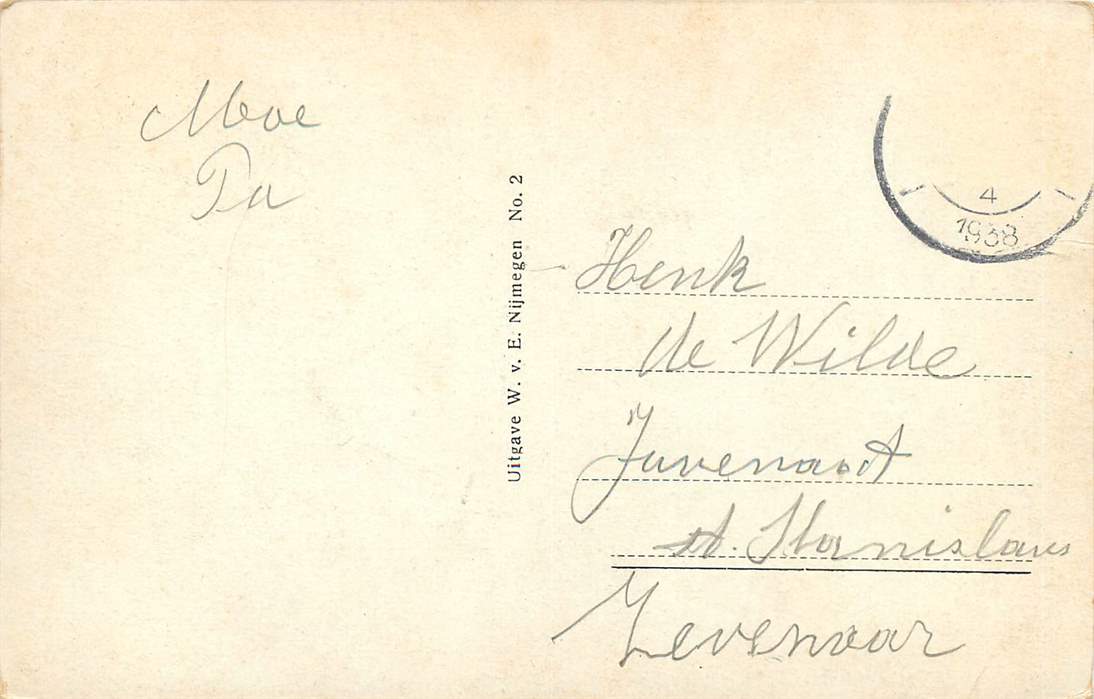 Moe
Pa
Uitgave W. v. E. Nijmegen No. 2
4
1938
Henk
de Wilde
Juvenaat
St. Stanislaus
Zevenaar